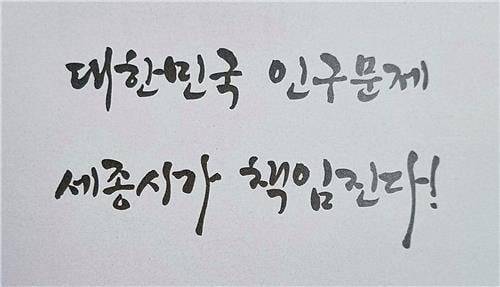 대한민국 인구문제
세종시가 책임진다!